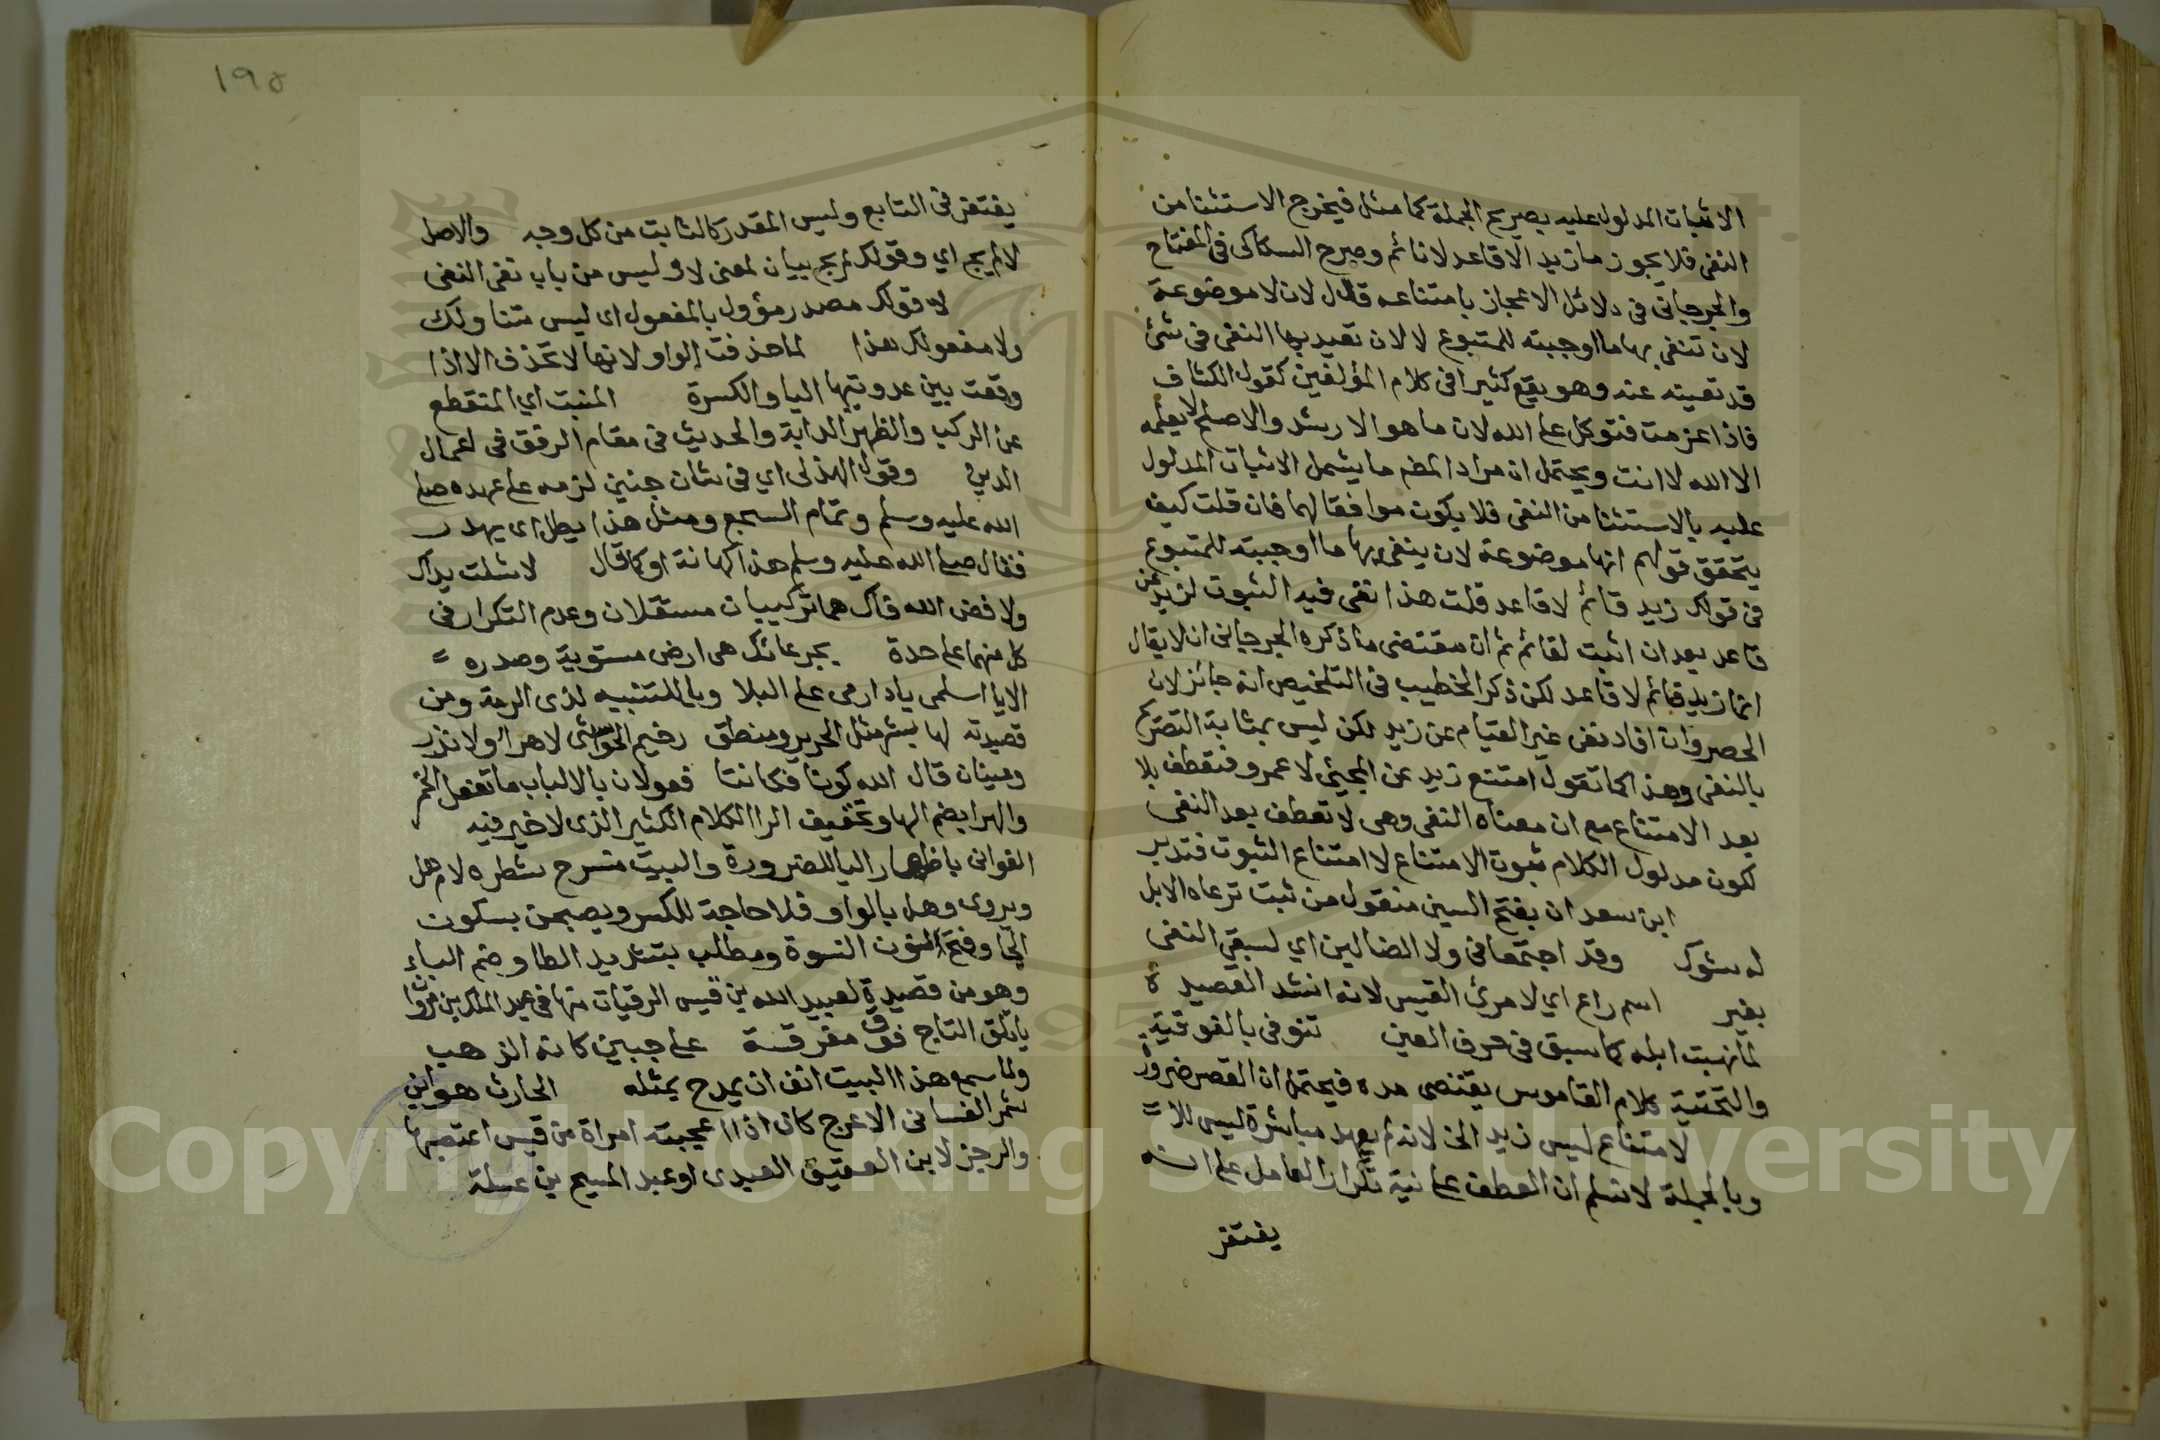 الاثبات المدلول عليه بصريح الجملة كما مثل فيخرج الاستثنا من
النفى فلا يجوز ما زيد الا قاعد لا نائم وصرح السكاكى فى المفتاح
والجرجانى فى دلائل الاعجاز بامتناعه قال لان لا موضوعة
لان تنفى بها ما اوجبته للمتبوع لا لان تعيد بها النفى فى شئ
قد نفيته عنه وهو يقع كثيرا فى كلام المؤلفين كقول الكشاف
فاذا عزمت فتوكل على الله لان ما هو الارشد والاصلح لا يعلمه
الا الله لا انت ويحتمل ان مراد المص ما يشمل الاثبات المدلول
عليه بالاستثنا من النفى فلا يكون موافقا لهما فان قلت كيف
يتحقق قولهم انها موضوعة لان ينفى بها ما اوجبته للمتبوع
فى قولك زيد قائم لا قاعد قلت هذا نفى فيه الثبوت لزيد عن
قاعد بعد ان اثبت لقائم ثم ان مقتضى ما ذكره الجرجانى ان لا يقال
انما زيد قائم لا قاعد لكن ذكر الخطيب فى التلخيص انه جائز لان
الحصر وان افاد نفى غير القيام عن زيد لكن ليس بمثابة التصريح
بالنفى وهذا كما تقول امتنع زيد عن المجئ لا عمرو فتعطف بلا
بعد الامتناع مع ان معناه النفى وهى لا تعطف بعد النفى
لكون مدلول الكلام ثبوت الامتناع لا امتناع الثبوت فتدبر
ابن سعدان بفتح السين منقول من نبت ترعاه الابل
له شوك وقد اجتمعا فى ولا الضالين اي لسبق النفى
بغير اسم راع اي لامرئ القيس لانه انشد القصيدة
لما نهبت ابله كما سبق فى حرف العين تنوفى بالفوقية
والتحتية كلام القاموس يقتضى مده فيحتمل ان القصر ضرورة
لامتناع ليس زيد الخ لانه لم يعهد مباشرة ليس للا =
وبالجملة لا نسلم ان العطف على نية تكرار العامل على انه
يغتفر
١٩٥
يغتفر فى التابع وليس المقدر كالثابت من كل وجه والاصل
لا لم يجى اي وقولك لم يجى بيان لمعنى لا وليس من باب نفى النفى
لا قولك مصدر مؤول بالمفعول اى ليس متناولك
ولا مفعولك هذا لما حذفت الواو لانها لا تحذف الا اذا
وقعت بين عدوتيها اليا والكسرة المنبت اي المتقطع
عن الركب والظهر الدابة والحديث فى مقام الرفق فى اعمال
الدين وقول الهذلى اي فى شان جنين لزمه على عهده صلى
الله عليه وسلم وتمام السجع ومثل هذا يطل اى يهدر
فقال صلى الله عليه وسلم هذا كهانة او كما قال لا شلت يداك
ولا فض الله فاك هما تركيبان مستقلان وعدم التكرار فى
كل منهما على حدة بجرعائك هى ارض مستوية وصدره =
الا يا اسلمى يا دار مى على البلا ويا للتنبيه لذى الرمة ومن
قصيدته لها بشر مثل الحرير ومنطق رخيم الحواشى لا هرا ولا نزر
وعينان قال الله كونا فكانتا فعولان بالالباب ما تفعل الخمر
والهرا بضم الها وتخفيف الرا الكلام الكثير الذى لا خير فيه
الغوانى باظهار اليا للضرورة والبيت منسرح شطره لام هل
ويروى وهل بالواو فلا حاجة للكسر ويصبحن بسكون
الحا وفتح النون النسوة ومطلب بتشديد الطا وضم الباء
وهو من قصيدة لعبيد الله بن قيس الرقيات منها فى عبد الملك بن مروان
ياتلق التاج فوق مفرقه على جبين كانه الذهب
ولما سمع هذا البيت انف ان يمدح بمثله الحارث هو ابن
شمر الغسانى الاعرج كان اذا اعجبته امراة من قيس اغتصبها
والرجز لابن العفيق العبدى او عبد المسيح بن عسلة
Copyright © King Saud University